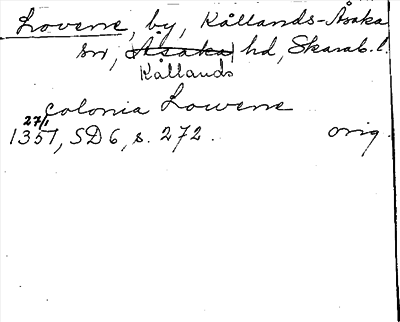 Lovene, by, Kållands-Åsaka
sn, Åsaka hd, Skarab. l.
Kållands
colonia Lowene
27/1
1351, SD 6, s. 272. orig.